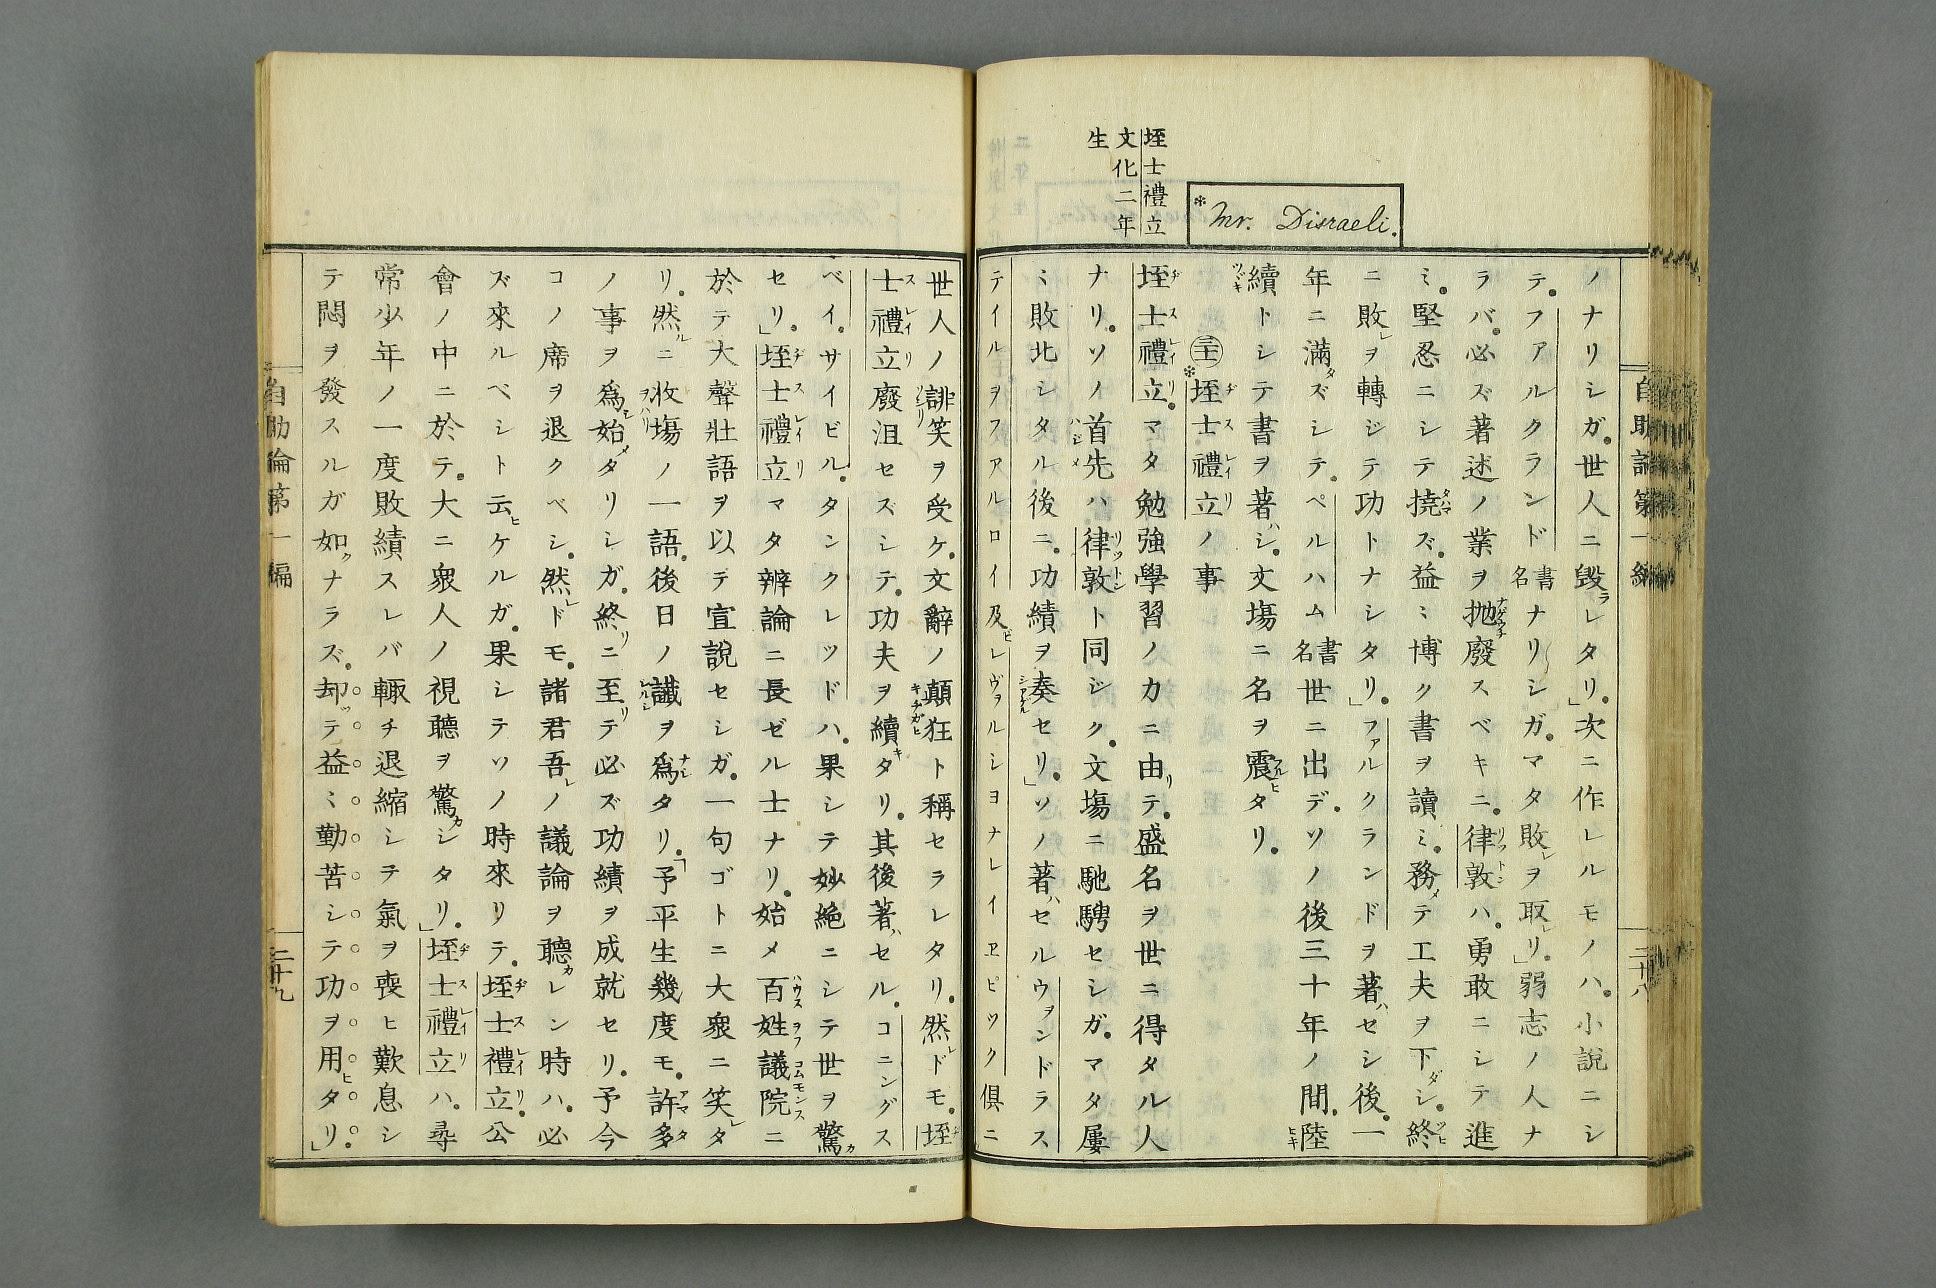 ノナリシガ。世人ニ毀ラレタリ。」次ニ作レルモノハ。小說ニシ
テ。フアルクランド書名ナリシガ。マタ敗レヲ取レリ。」弱志ノ人ナ
ラバ。必ズ著述ノ業ヲ抛廢スベキニ。律敦ハ。勇敢ニシテ進
ミ。堅忍ニシテ撓ズ。益ミ博ク書ヲ讀ミ。務メテ工夫ヲ下ダシ。終
ニ敗レヲ轉ジテ功トナシタリ。」ファルクランドヲ著ハセシ後。一
年ニ滿タズシテ。ペルハム書名世ニ出デ。ソノ後三十年ノ間。陸
續トシテ書ヲ著ハシ。文塲ニ名ヲ震タリ。
*垤士禮立ノ事
垤士禮立。マタ勉強學習ノカニ由リテ。盛名ヲ世ニ得タル人
ナリ。ソノ首先ハ律敦ト同ジク。文塲ニ馳騁セシガ。マタ屢
ミ敗北シタル後ニ。功績ヲ奏セリ。」ソノ著ハセルウヲンドラス
テイルヲフアルロイ及ビレヴァルシヨナレイエピック俱ニ
垤士禮立
文化二年
生
*Mr. Disraeli.
自助論第一編
二十八
世人ノ誹笑ヲ受ケ。文辭ノ顛狂ト稱セラレタリ。然レドモ。垤
士禮立廢沮セズシテ。功夫ヲ續キタリ。其後著ハセル。コニングス
ベイ。サイビル。タンクレッドハ。果シテ妙絶ニシテ世ヲ驚カ
セリ。」垤士禮立マタ辨論ニ長ゼル士ナリ。始メ百姓議院ニ
於テ大聲壯語ヲ以テ宣說セシガ。一句ゴトニ大衆ニ笑レタ
リ。然ルニ收塲ノ一語。後日ノ讖ヲ爲タリ。「予平生幾度モ。許多
ノ事ヲ爲シ始メタリシガ。終リニ至リテ必ズ功績ヲ成就セリ。予今
コノ席ヲ退クベシ。然レドモ。諸君吾レノ議論ヲ聽カレン時ハ。必
ズ來ルベシト云ヒケルガ。果シテソノ時來リテ。垤士禮立。公
會ノ中ニ於テ。大ニ衆人ノ視聽ヲ驚カシタリ。」垤士禮立ハ。尋
常少年ノ一度敗績スレバ輙チ退縮シテ氣ヲ喪ヒ歎息シ
テ悶ヲ發スルガ如クナラズ。却ッテ益ミ勤苦シテ功ヲ用ヒタリ。」
自助論第一編
二十九